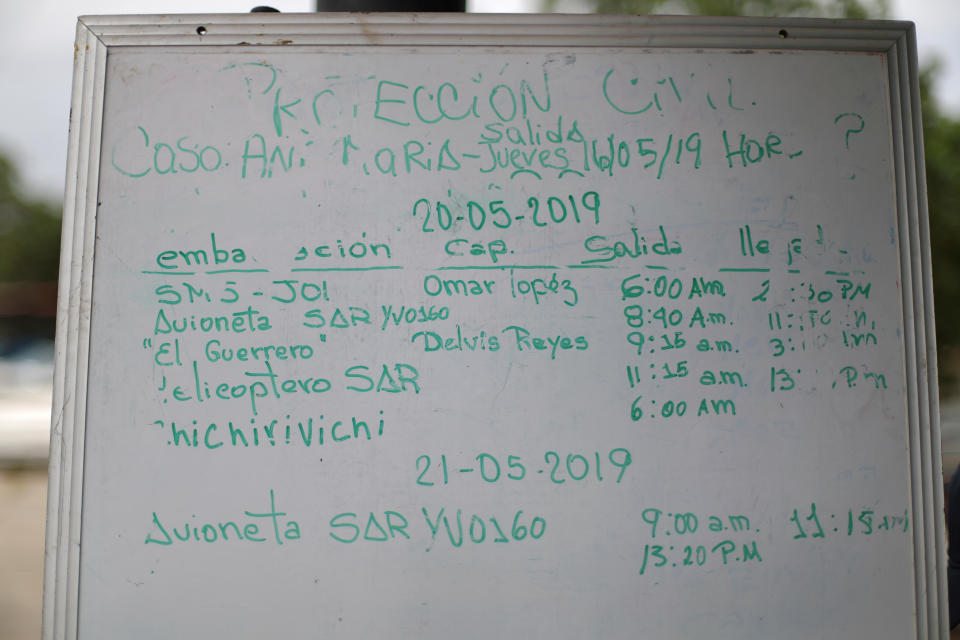 PROTECCIÓN CIVIL
CASO: ANA MARIA - Salida Jueves 16/05/19 HOR- ?
20-05-2019
emba ación Cap. Salida
SMS-JOI Omar lopéz 6:00 Am 2 :30 PM
Avioneta SAR YV0160 8:40 A.m.
"El Guerrero" Delvis Reyes 9:15 a.m.
elicoptero SAR 11:15 a.m. 13: P.m
hichirivichi 6:00 AM
21-05-2019
Avioneta SAR YV0160 9:00 a.m. 11:15 a.m
13:20 P.M